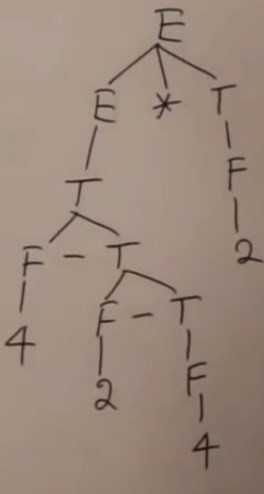 E
E * T
T F
F - T 2
4 F - T
2 F
4